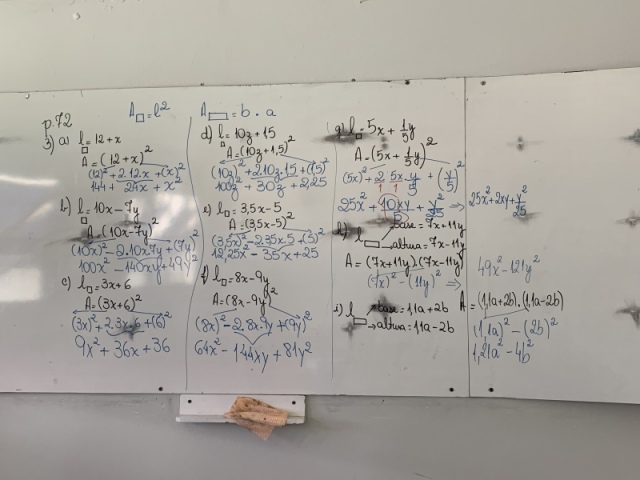 p.72
A□ = l²
A▭ = b · a
3) a) l□ = 12 + x
A = (12 + x)²
(12)² + 2.12.x + (x)²
144 + 24x + x²
b) l□ = 10x - 7y
A = (10x - 7y)²
(10x)² - 2.10x.7y + (7y)²
100x² - 140xy + 49y²
c) l□ = 3x + 6
A = (3x + 6)²
(3x)² + 2.3x.6 + (6)²
9x² + 36x + 36
d) l□ = 10z + 15
A = (10z + 1,5)²
(10z)² + 2.10z.1,5 + (1,5)²
100z² + 30z + 2,25
e) l□ = 3,5x - 5
A = (3,5x - 5)²
(3,5x)² - 2.3,5x.5 + (5)²
12,25x² - 35x + 25
f) l□ = 8x - 9y
A = (8x - 9y)²
(8x)² - 2.8x.9y + (9y)²
64x² - 144xy + 81y²
g) l□ = 5x + 1/5y
A = (5x + 1/5y)²
(5x)² + 2.5x.y/5 + (y/5)²
25x² + 10xy/5 + y²/25 => 25x² + 2xy + y²/25
h) l▭ base = 7x + 11y
altura = 7x - 11y
A = (7x + 11y).(7x - 11y)
(7x)² - (11y)² => 49x² - 121y²
i) l▭ base = 1,1a + 2b
altura = 1,1a - 2b
A = (1,1a + 2b).(1,1a - 2b)
(1,1a)² - (2b)²
1,21a² - 4b²